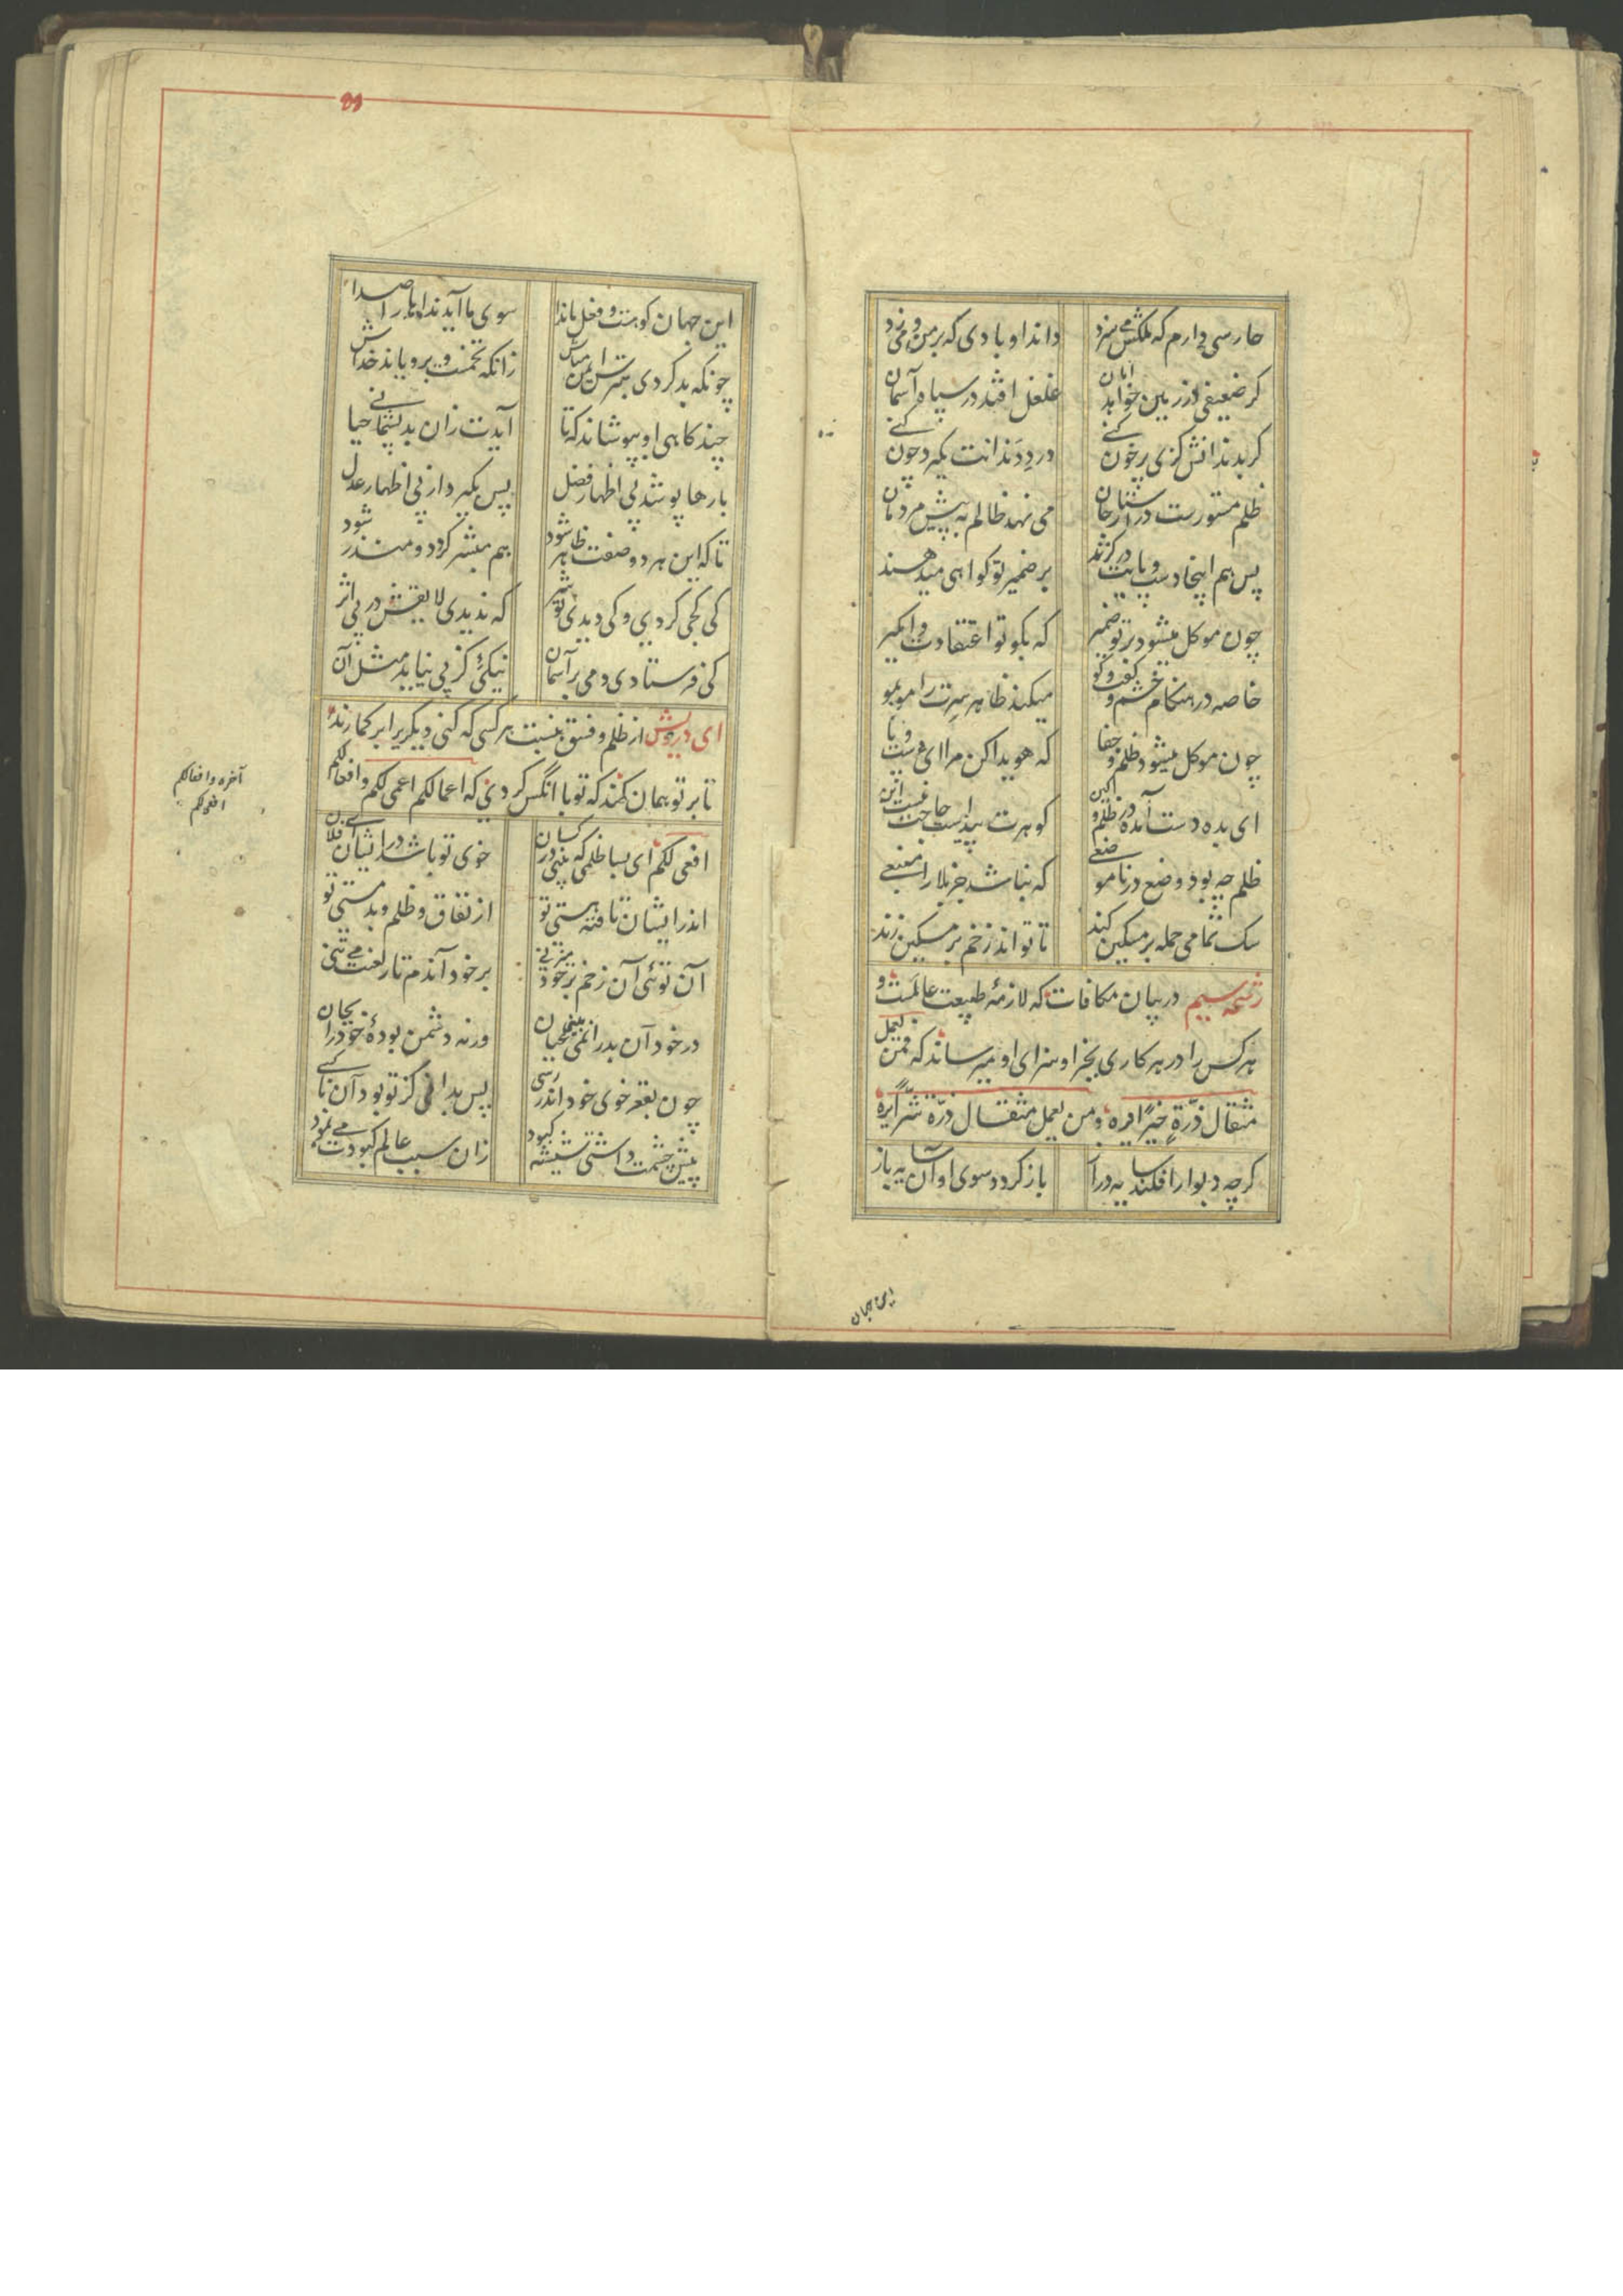 حارسی دارم که ملکش می سزد
داند او بادی که بر من می وزد
کر ضعیفی در زمین خواهد امان
غلغل افتد در سپاه آسمان
کر بدندانش کزی پر خون کنی
درد دندانت بگیرد چون کنی
ظلم مستورست در اسرار جان
می نهد ظالم به پیش مردمان
پس هم اینجا دست و پایت در کزند
بر ضمیر تو کواهی میدهند
چون موکل میشود بر تو ضمیر
که بکو تو اعتقادت وا مکیر
خاصه در هنکام خشم و کفت و کو
میکند ظاهر سرت را مو بمو
چون موکل میشود ظلم و جفا
که هویدا کن مرا ای دست و پا
ای بده دست آمده در ظلم و کین
کوهرت پیداست حاجت نیست این
ظلم چه بود وضع در نا موضعی
که نباشد جز بلا را منبعی
سک نمامی حمله بر مسکین کند
تا تواند زخم بر مسکین زند
رشحه سیم در بیان مکافات که لازمهٔ طبیعت عالمست و
هر کس را در هر کاری بجزا و سزای او میرساند که فمن یعمل
مثقال ذرّةٍ خیرًا یره و من یعمل مثقال ذرّة شرًّا یره
کرچه دیوار افکند سایه دراز
باز کردد سوی او آن سایه باز
این جهان
این جهان کوهست و فعل ما ندا
سوی ما آید نداها را صدا
چونکه بد کردی بترس ایمن مباش
زانکه تخمست و برویاند خداش
چند کاهی او بپوشاند که تا
آیدت زان بد پشیمانی حیا
بارها پوشد پی اظهار فضل
پس بکیرد از پی اظهار عدل
تا که این هر دو صفت ظاهر شود
هم مبشر کردد و منذر شود
کی کجی کردی و کی دیدی تو شر
که ندیدی لایقش در پی اثر
کی فرستادی دمی بر آسمان
نیکیی کز پی نیاید مثل آن
ای درویش از ظلم و فسق بنسبت هر کسی که کنی دیکریرا بر کمارند
تا بر تو همان کند که تو با انکس کردی که اعمالکم اعمی لکم و افعالکم
افعی لکم ای بسا ظلمی که بینی در کسان
خوی تو باشد در ایشان ای فلان
اندر ایشان تافته هستی تو
از نفاق و ظلم و بد مستی تو
آن توئی آن زخم بر خود میزنی
بر خود آندم تار لعنت می تنی
در خود آن بد را نمی بینی عیان
ورنه دشمن بودهٔ خود را بجان
چون بقعر خوی خود اندر رسی
پس بدانی کز تو بود آن ناکسی
پیش چشمت داشتی شیشه کبود
زان سبب عالم کبودت می نمود